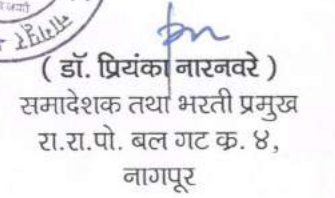 नागपूर
( डॉ. प्रियंका नारनवरे )
समादेशक तथा भरती प्रमुख
रा.रा.पो. बल गट क्र. ४,
नागपूर